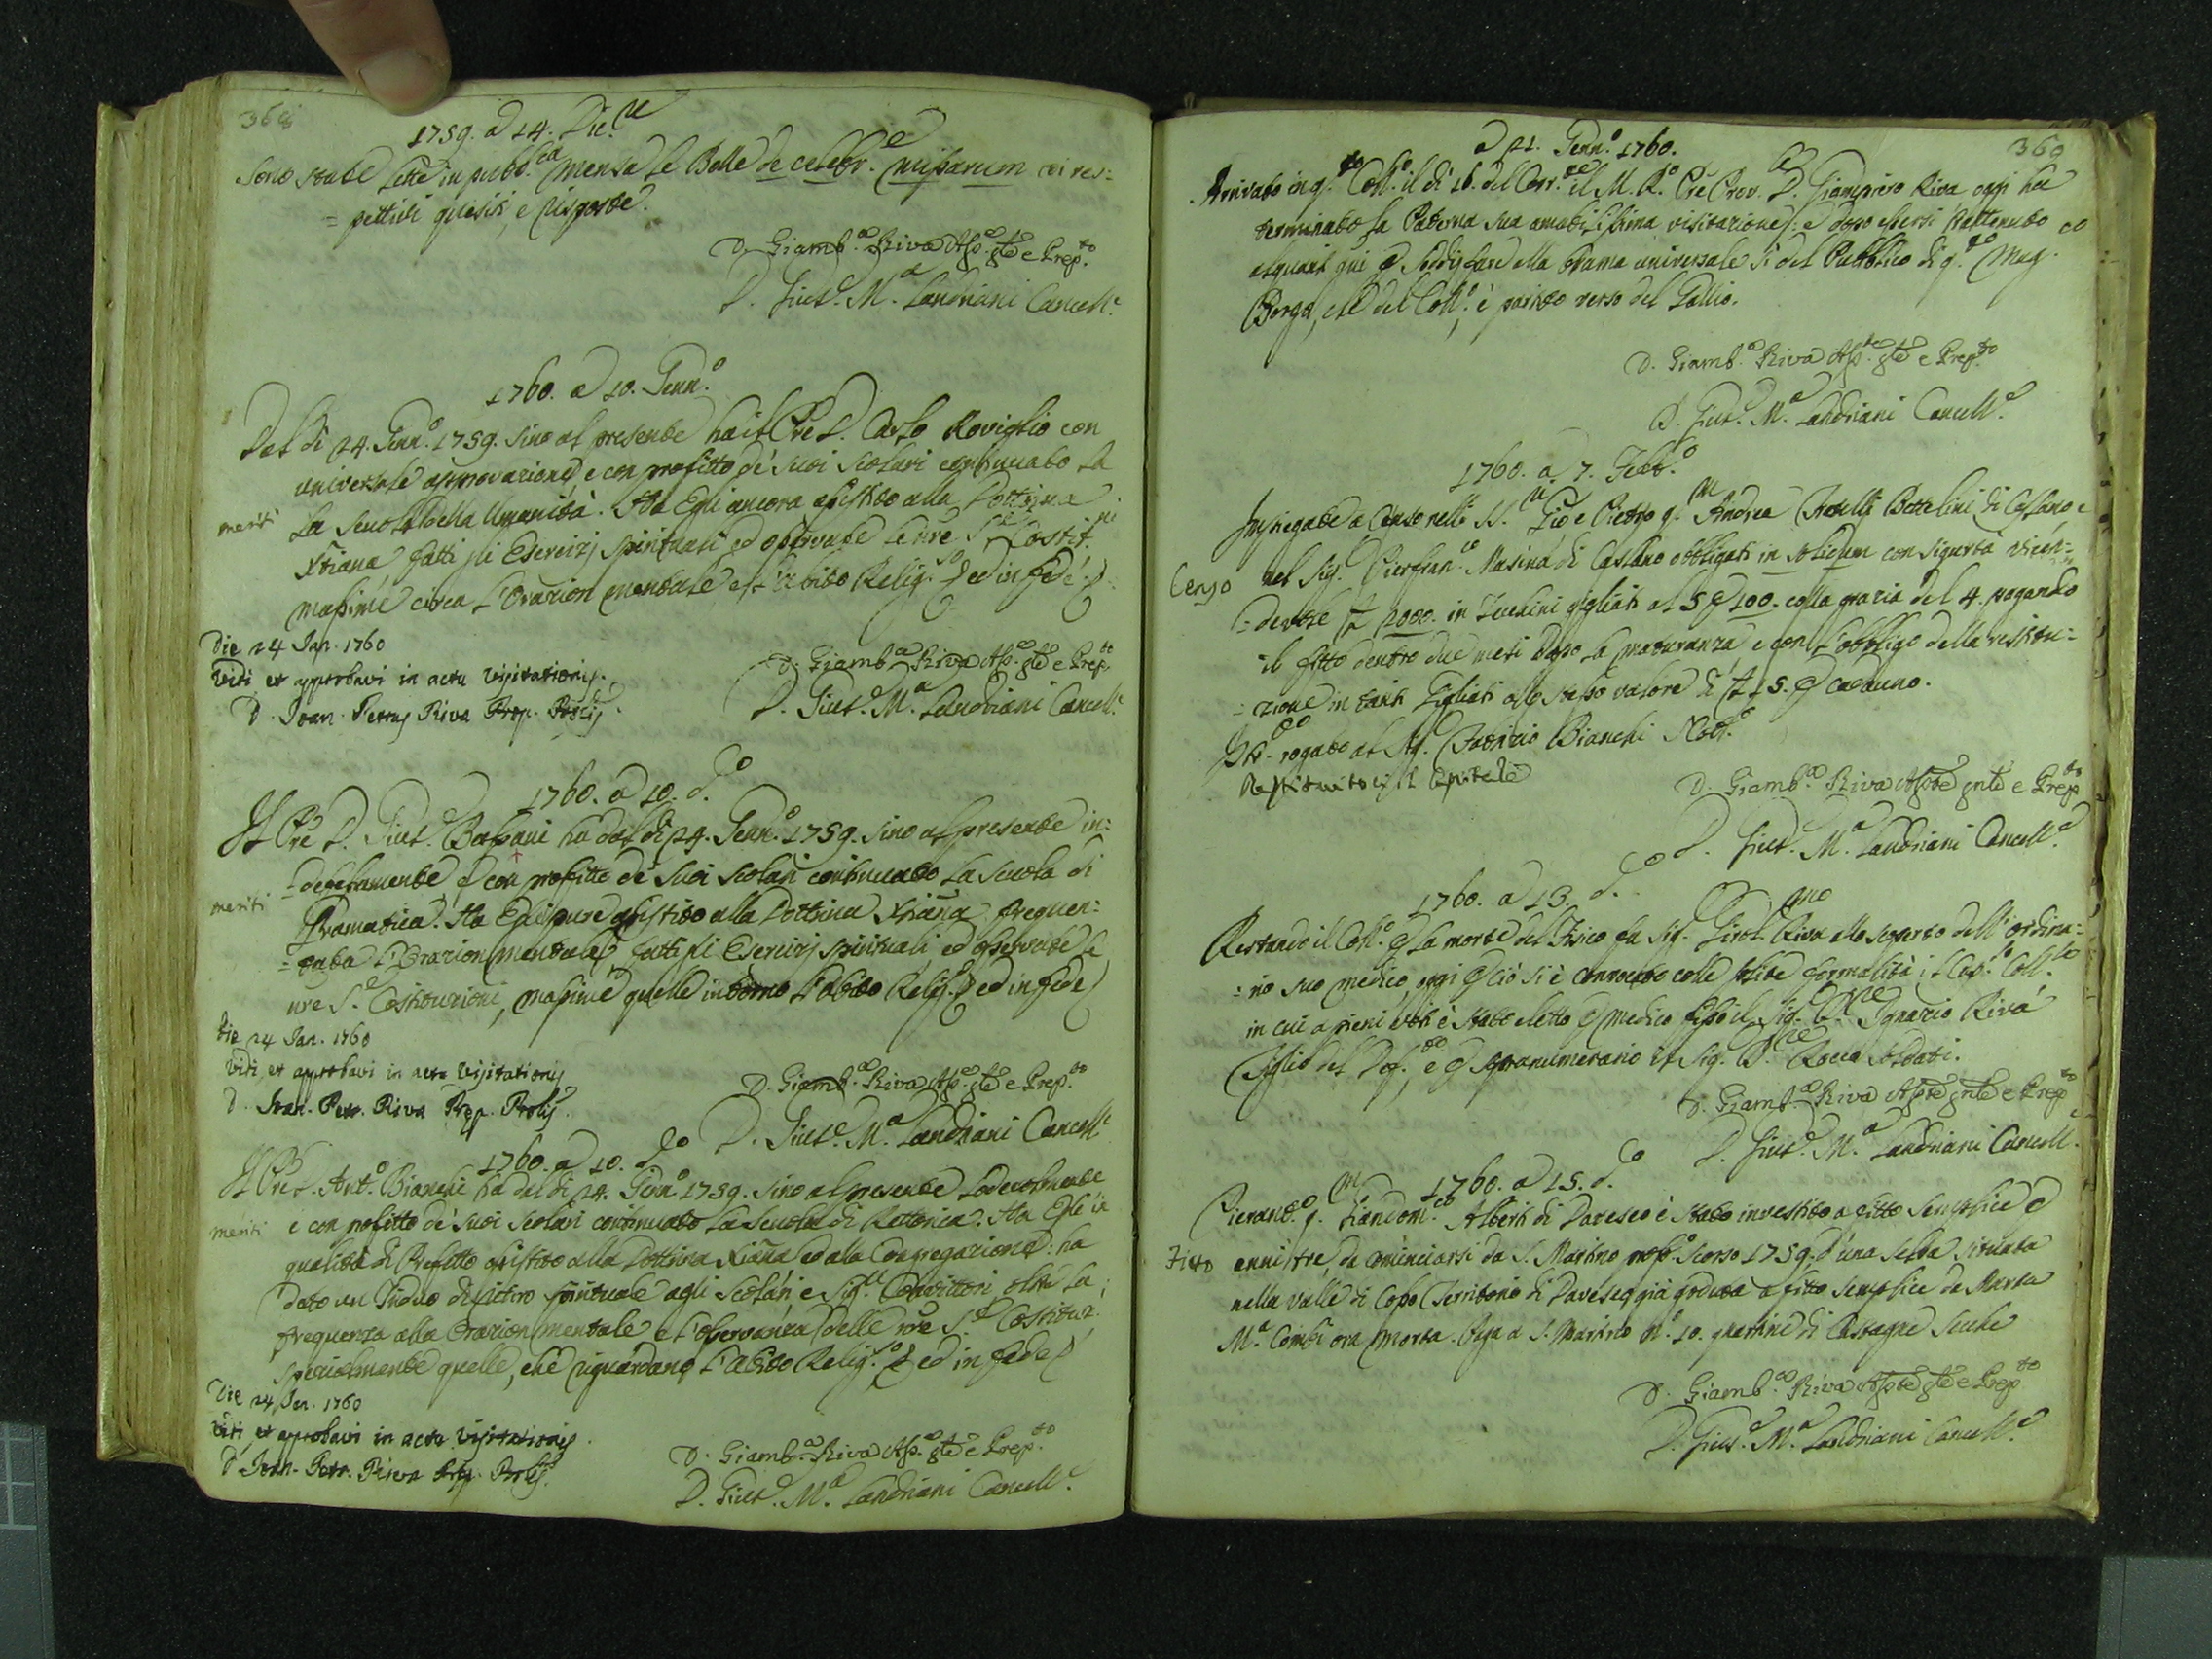 368
1759. a 14. Dic.re
Sono state lette in pubb.ca mensa le Bolle de celebr.e missarum coi res:
=pettivi quesiti, e risposte.
D. Giamb.a Riva Ass.e gñle e Prep.to
D. Gius.e M.a Landriani Cancell.e
1760. a 10. Genn.o
Dal dì 24. Genn.o 1759. sino al presente ha il Pre D. Carlo Roviglio con
universale approvazione, e con profitto de' suoi Scolari continuato la
meriti
la Scuola della Umanità. Ha Egli ancora assistito alla Dottrina
Xtiana fatti gli Esercizj spirituali ed osservate le nre S.e Costit.ni
massime circa l'Orazion mentale e l'abito Relig.so ed in fede
Die 24 Jan. 1760
Vidi et approbavi in actu visitationis.
D. Joan. Petrus Riva Prep. Prolis
D. Giamb.a Riva Ass.e gñle e Prep.to
D. Gius.e M.a Landriani Cancell.e
1760. a 10. d.o
Il Pre D. Gius.e Bassani ha dal dì 24. Genn.o 1759. sino al presente in:
=defessamente e con profitto de' suoi Scolari continuato la Scuola di
meriti
Gramatica. Ha Egli pure assistito alla Dottrina Xtiana frequen:
=tata l'Orazion mentale, fatti gli Esercizj spirituali, ed osservate le
nre S.e Costituzioni, massime quelle intorno l'abito Relig.so ed in fede
Die 24 Jan. 1760
Vidi et approbavi in actu visitationis
D. Joan. Petr. Riva Prep. Prolis.
D. Giamb.a Riva Ass.e gñle e Prep.to
D. Gius.e M.a Landriani Cancell.e
1760. a 10. d.o
Il Pre D. Ant.o Bianchi ha dal dì 24. Genn.o 1759. sino al presente lodevolmente
meriti
e con profitto de' suoi Scolari continuato la Scuola di Rettorica. Ha Egli in
qualità di Prefetto assistito alla Dottrina Xtiana ed alla Congregazione: ha
dato un Triduo di ritiro spirituale agli Scolari e Sig.ri Convittori oltre la
frequenza alla Orazion mentale e l'osservanza delle nre S.e Costituz.
specialmente quelle, che riguardano l'abito Relig.so ed in fede
Die 24 Jan. 1760
Vidi et approbavi in actu visitationis.
D. Joan. Petr. Riva Prep. Prolis.
D. Giamb.a Riva Ass.e gñle e Prep.to
D. Gius.e M.a Landriani Cancell.e
369
a 21. Genn.o 1760.
Arrivato in q.to Coll.o il dì 16. del Corr.te il M. R. Pre Prov.le D. Giampietro Riva oggi ha
terminato la Paterna sua amabilissima visitazione: e dopo essersi trattenuto
alquanti qui per soddisfare alla brama universale sì del Pubblico di q.to Mag.co
Borgo, che del Coll.o, è partito verso del Gallio.
D. Giamb.a Riva Ass.te gñle e Prep.to
D. Gius.e M.a Landriani Cancell.e
1760. a 7. Febb.o
Impiegate a Censo nelli SS.ri Gio e Pietro q.m Andrea Fratelli Bettelini di Caslano, e
Censo
nel Sig. Pierfran.co Masina di Caslano obbligati in solidum con sigurtà vicen:
=devole £ 2000. in Zecchini gigliati al 5 per 100. colla grazia del 4. pagando
il fitto dentro due mesi dopo la maturanza, e con l'obbligo della restitu:
=zione in tanti Gigliati allo stesso valore di £ 15. per caduno.
Istr.o rogato al Sig. Fabrizio Bianchi Not.o
Restituito il Capitale
D. Giamb.a Riva Ass.te gñle e Prep.to
D. Gius.e M.a Landriani Cancell.e
1760. a 13. d.o
Restando il Coll.o per la morte del Fisico fu Sig. Girol.mo Riva allo scoperto dell'ordina:
=rio suo medico, oggi per ciò si è convocato colle solite formalità il Cap.lo Coll.le
in cui a pieni voti è stato eletto per Medico fisso il Sig. D.re Ignazio Riva
Figlio del Def.to e per sopranumerario il Sig. D.re Rocca Soldati.
D. Giamb.a Riva Ass.te gñle e Prep.to
D. Gius.e M.a Landriani Cancell.e
1760. a 15. d.o
Pierant.o q.m Giandom.co Alberti di Davesco è stato investito a fitto semplice per
Fitto
anni tre, da cominciarsi da S. Martino pross.o scorso 1759. d'una Selva situata
nella valle di Cosso Territorio di Davesco già goduta a fitto semplice da Marta
M.a Combi ora morta. Paga a S. Martino n.o 10. quartine di Castagne secche
D. Giamb.a Riva Ass.te gñle e Prep.to
D. Gius.e M.a Landriani Cancell.e